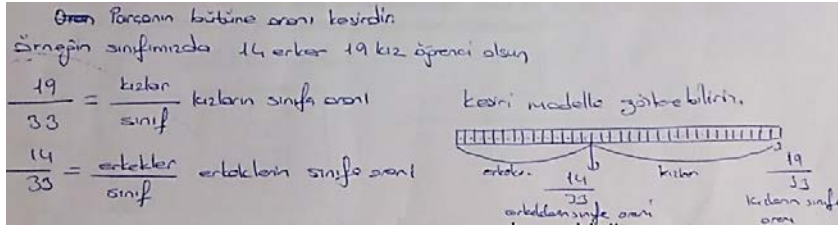 Oran Parçanın bütüne oranı kesirdir.
Örneğin sınıfımızda 14 erkek 19 kız öğrenci olsun
19/33 = kızlar/sınıf kızların sınıfa oranı
14/33 = erkekler/sınıf erkeklerin sınıfa oranı
kesri modelle gösterebiliriz.
erkek. 14/33 kızlar 19/33
erkeklerin sınıfa oranı
kızların sınıfa oranı